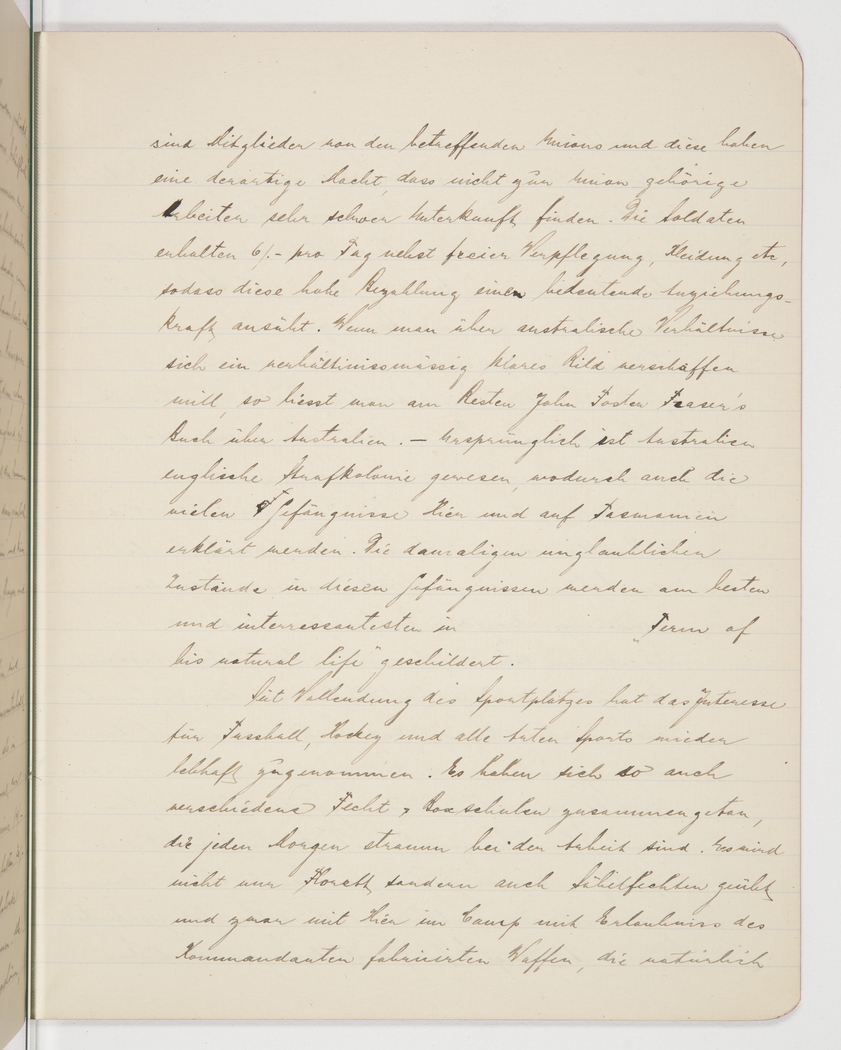 sind Mitglieder von den betreffenden Unions und diese haben
eine derartige Macht, dass nicht zur Union gehörige
Arbeiter sehr schwer Unterkunft finden. Die Soldaten
erhalten 6/- pro Tag nebst freier Verpflegung, Kleidung etc,
sodass diese hohe Bezahlung einen bedeutende Anziehungs-
kraft ausübt. Wenn man über australische Verhältnisse
sich ein verhältinissmässig klares Bild verschaffen
will, so liesst man am Besten John Foster Fraser's
Buch über Australien. — Ursprünglich ist Australien
englische Strafkolonie gewesen, wodurch auch die
vielen Gefängnisse hier und auf Tasmanien
erklärt werden. Die damaligen unglaublichen
Zustände in diesen Gefängnissen werden am besten
und interressantesten in „Term of
his natural life" geschildert.
Seit Vollendung des Sportplatzes hat das Interesse
für Fussball, Hockey und alle Arten Sports wieder
lebhaft zugenommen. Es haben sich so auch
verschiedene Fecht & Boxschulen zusammengetan,
die jeden Morgen stramm bei der Arbeit sind. Es wird
nicht nur Florett sondern auch Säbelfechten geübt
und zwar mit hier im Camp mit Erlaubniss des
Kommandanten fabrizirten Waffen, die natürlich